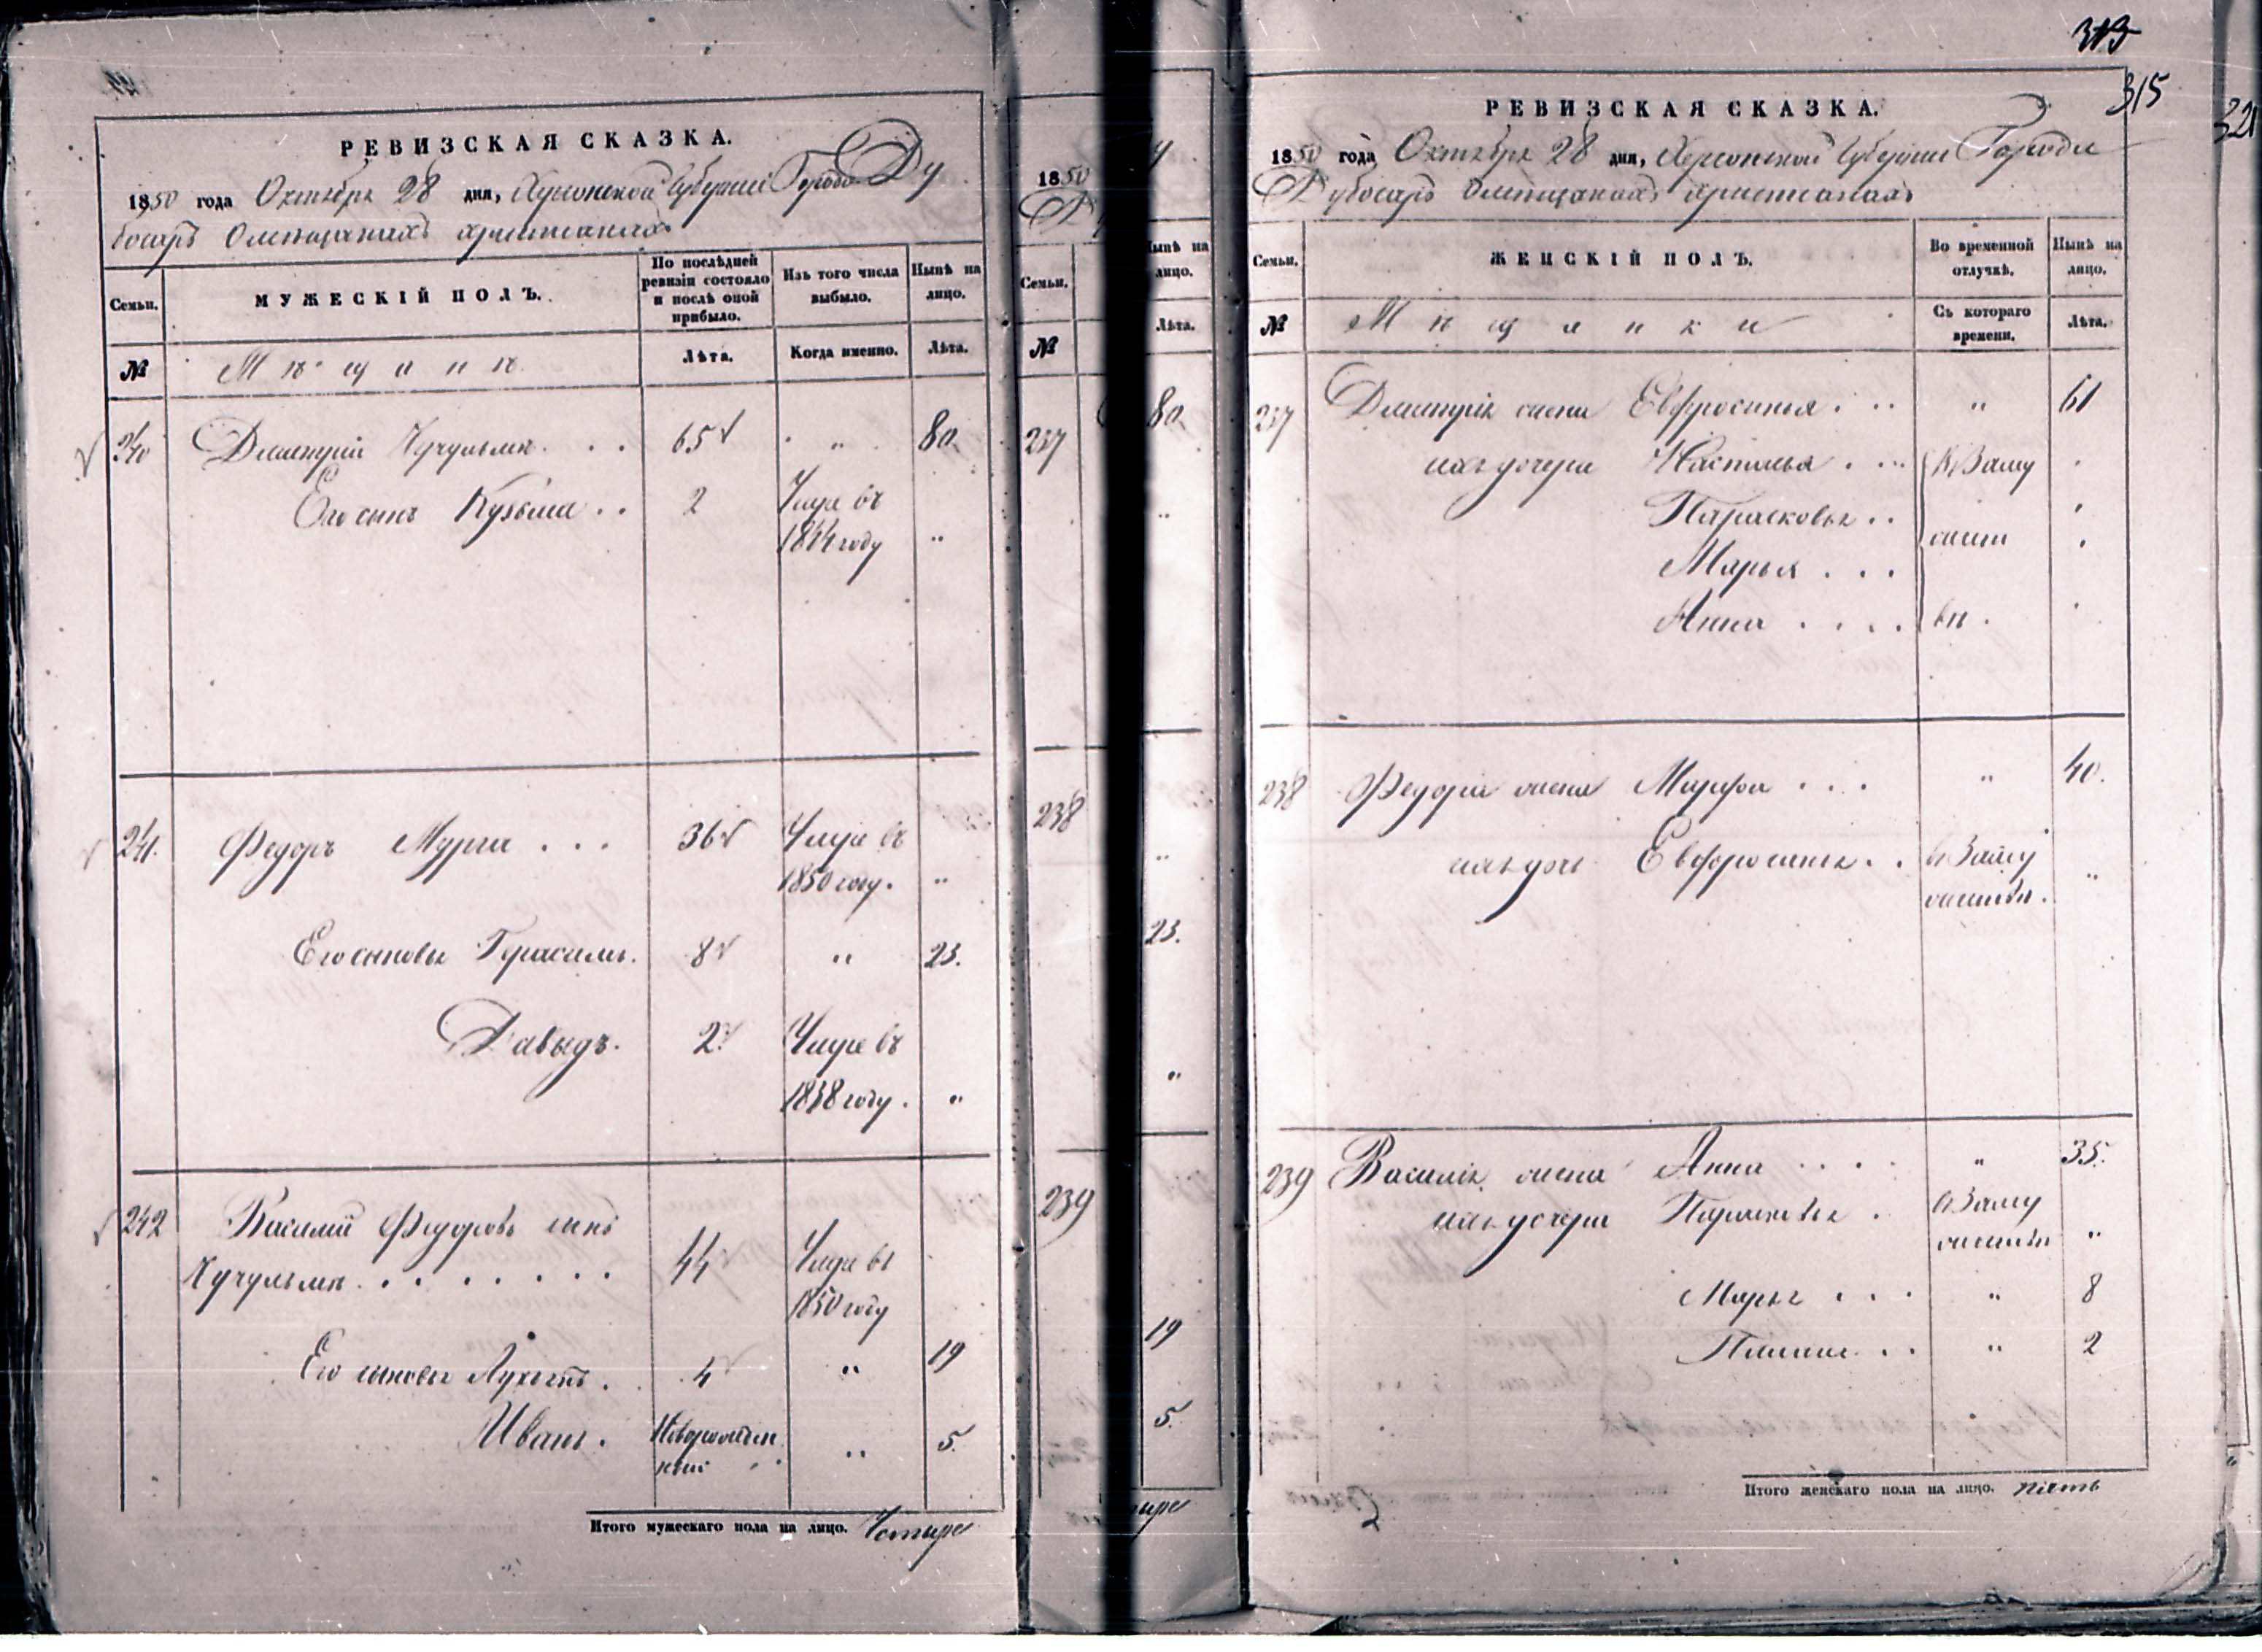 РЕВИЗСКАЯ СКАЗКА.
1850 года Октября 28 дня, Херсонской Губернiи Города Ду
босаръ Омещанахъ христианахъ
Семьи.
МУЖЕСКIЙ ПОЛЪ.
По послѣдней ревизiи состояло и послѣ оной прибыло.
Изъ того числа выбыло.
Нынѣ на лицо.
№
Мѣщанѣ
Лѣта.
Когда именно.
Лѣта.
240 Дмитрiй Кучульмъ . . . 65 " 80
Его сынъ Кузьма . . 2 Умре въ
1844 году "
241. Федоръ Мурга . . . 36 Умре въ
1850 году. "
Его сыновья Герасимъ. 8 " 23.
Давыдъ. 2 Умре въ
1838 году. "
242 Василiй Федоровъ сынъ
Кучульмъ . . . . . . . 44 Умре въ
1850 году
Его сыновья Лукьянъ . 4 " 19
Иванъ . Новорожден
ный " 5.
Итого мужескаго пола на лицо. Четыре
1850
Семьи.
№
237
238
239
у
Нынѣ на лицо.
Лѣта.
80.
"
"
23.
"
19
5.
тыре
313
315
321
РЕВИЗСКАЯ СКАЗКА.
1850 года Октября 28 дня, Херсонской Губернiи Города
Дубосаръ Омещанахъ христианахъ
Семьи.
ЖЕНСКIЙ ПОЛЪ.
Во временной отлучкѣ.
Нынѣ на лицо.
№
Мѣщанки
Съ котораго времени.
Лѣта.
237 Дмитрiя жена Евфросинья . . . " 61
ихъ дочери Настасья . . . въ Заму
Парасковья . .
Марья . . . жест
Анна . . . . вѣ .
238 Федора жена Марфа . . . " 40.
ихъ дочь Евфросинья . . въ Заму
жествѣ. "
239 Василiя жена Анна . . . . " 35.
ихъ дочери Парасковья . въ Заму
жествѣ "
Марья . . . " 8
. . " 2
Итого женскаго пола на лицо. пять